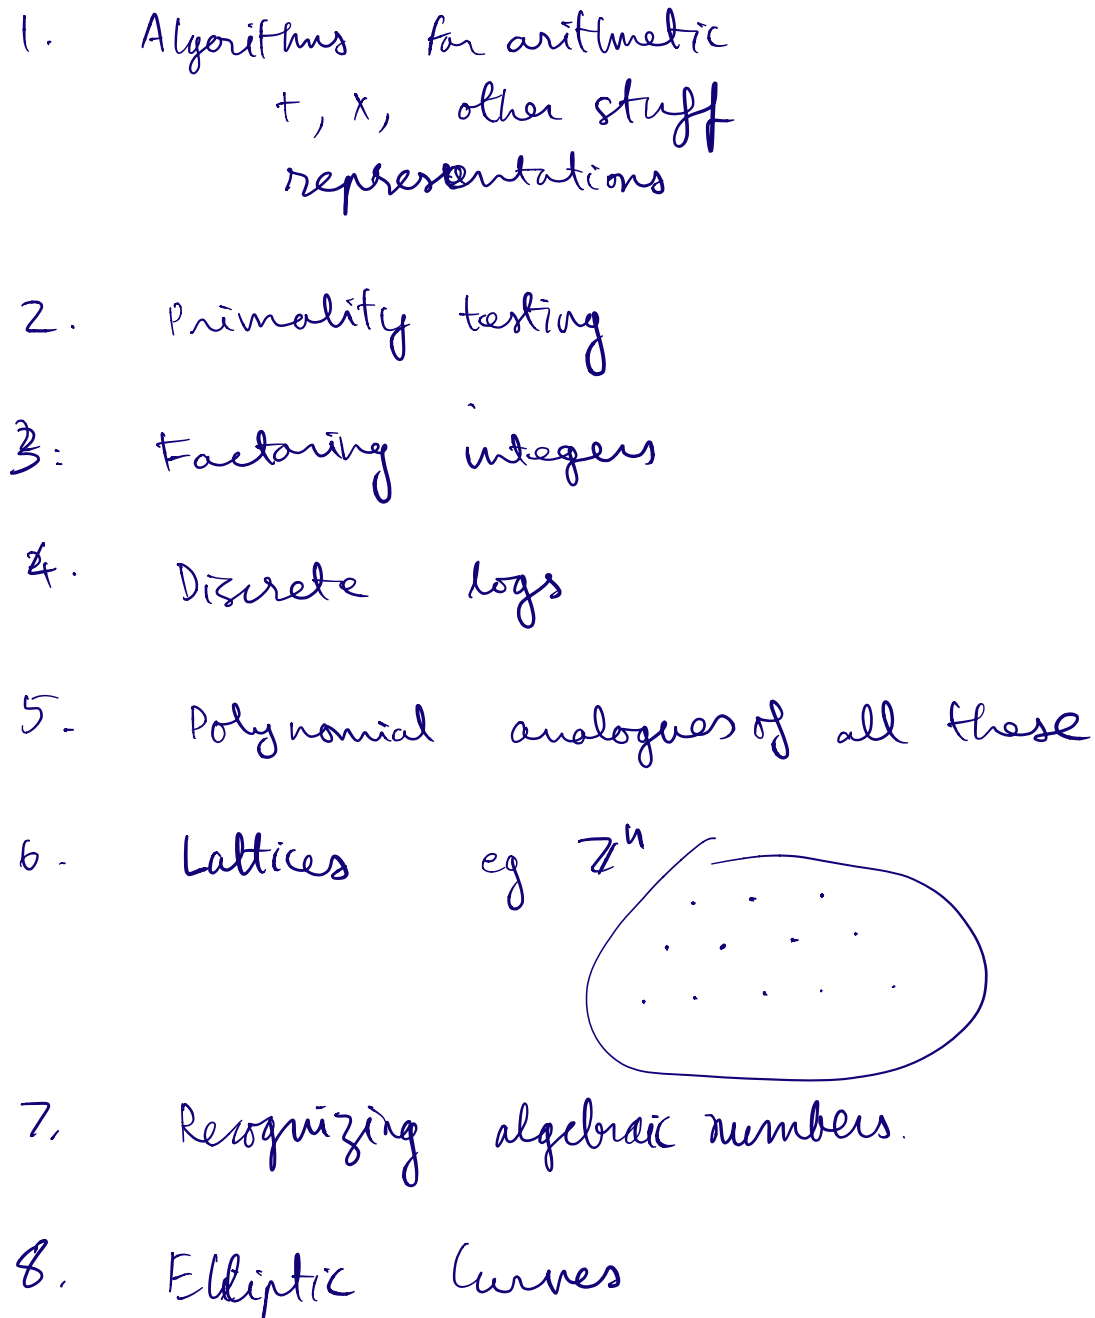 1. Algorithms for arithmetic
+, x, other stuff
representations
2. Primality testing
3. Factoring integers
4. Discrete logs
5. Polynomial analogues of all these
6. Lattices eg ℤⁿ
7. Recognizing algebraic numbers.
8. Elliptic Curves